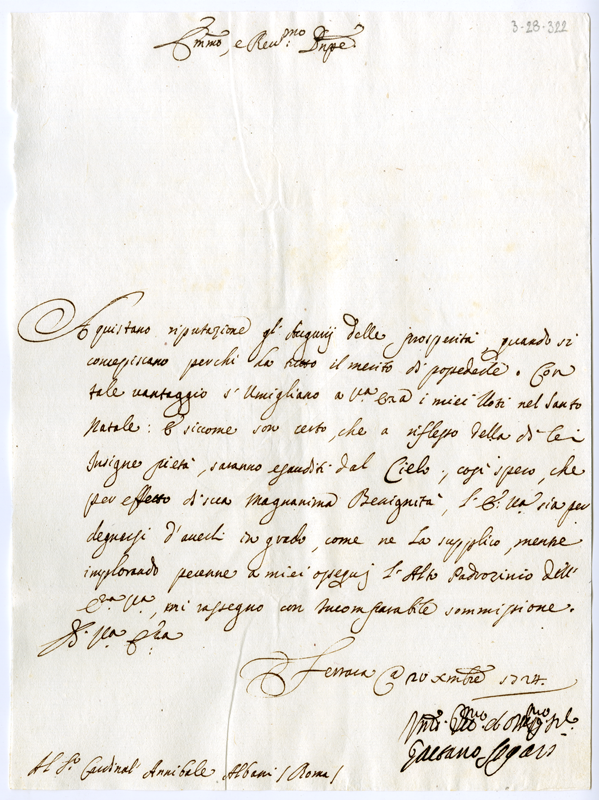 3-28-322
Emmo, e Reumo Pnpe
Aquistano riputazione gl'Augurij delle prosperità, quando si
concepiscano perchi ha tutto il merito di possederle. Con
tale vantaggio s'Umigliano a Va Era i miei Voti nel Santo
Natale: E siccome son certo, che a riflesso della di lei
Insigne pietà, saranno esauditi dal Cielo; così spero, che
per effetto di sua magnanima Benignità, l'Ea Va sia per
degnarsi d'averli in grado, come ne La supplico, mentre
implorando perenne a miei ossequij l'Alto Padrocinio dell'
Ea Va, mi rassegno con incomparabile sommissione.
Di Va Era
Ferrara @ 20 Xmbre 1724.
Gaetano
Al Sr Cardinal Annibale Albani (Roma)